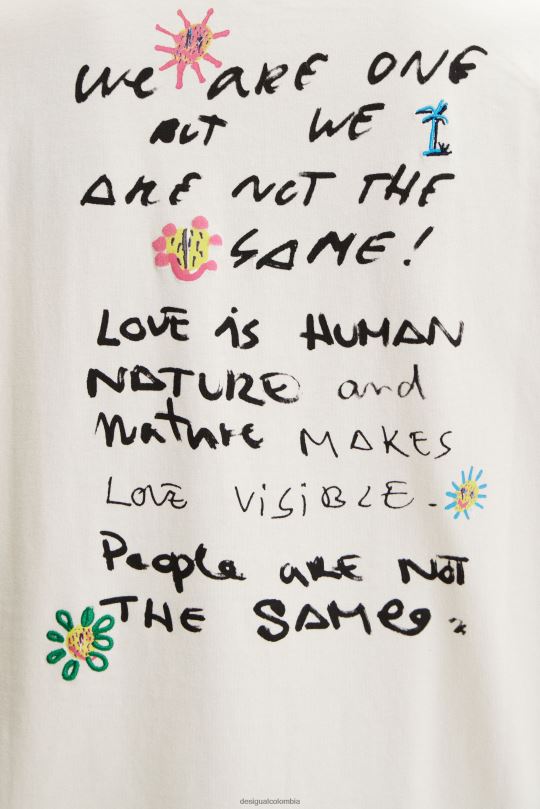 We ARE ONE
BUT WE
ARE NOT THE
SAME!
LOVE is HUMAN
NATURE and
Nature MAKES
LOVE ViSiBLE.
People aRE NOT
THE SAMe.
desigualcolombia